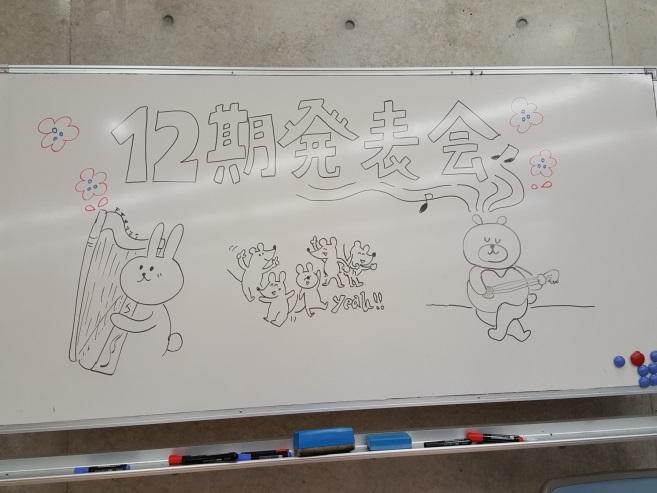 12期発表会
yeah!!